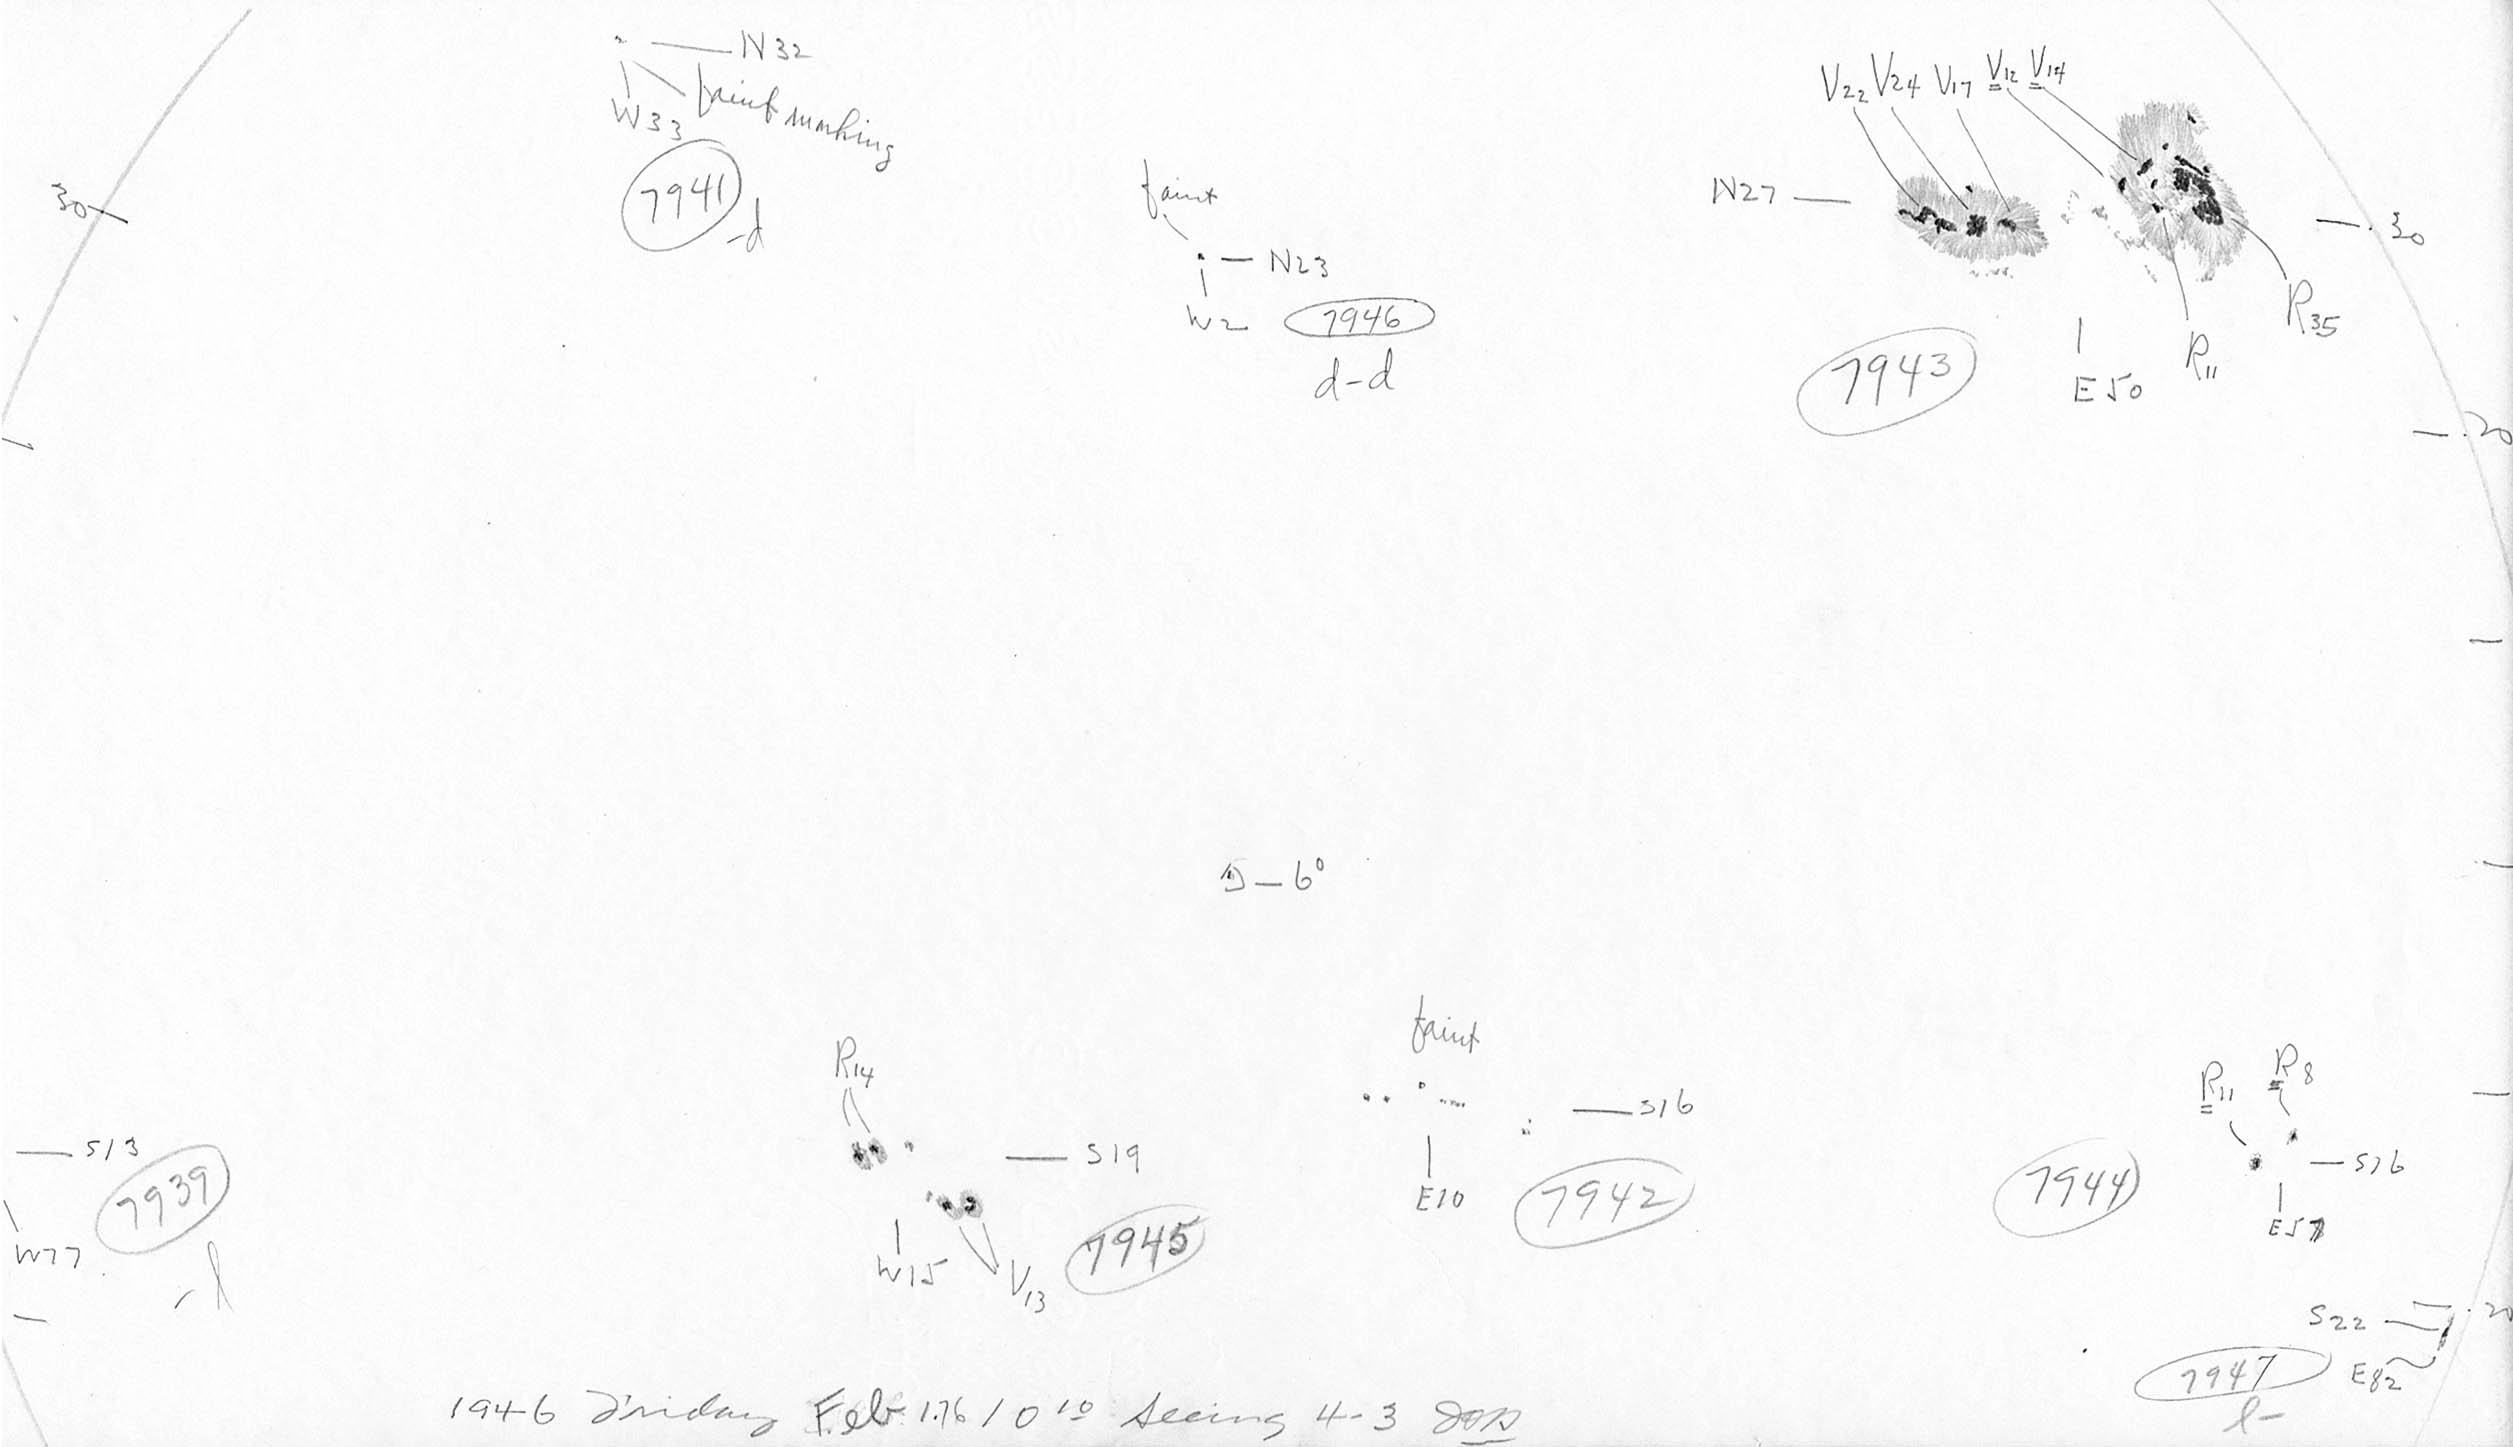 N32
W33
faint marking
7941
-d
30
faint
N23
W2
7946
d-d
V22 V24 V17 V12 V14
N27
30
R35
R11
7943
E50
20
-6°
R14
S19
W15
V13
7945
faint
S16
E10
7942
R11 R8
S16
7944
S13
7939
W77
-l
S22
20
E82
7947
l-
1946 Friday Feb 1.76 10 10 Seeing 4-3